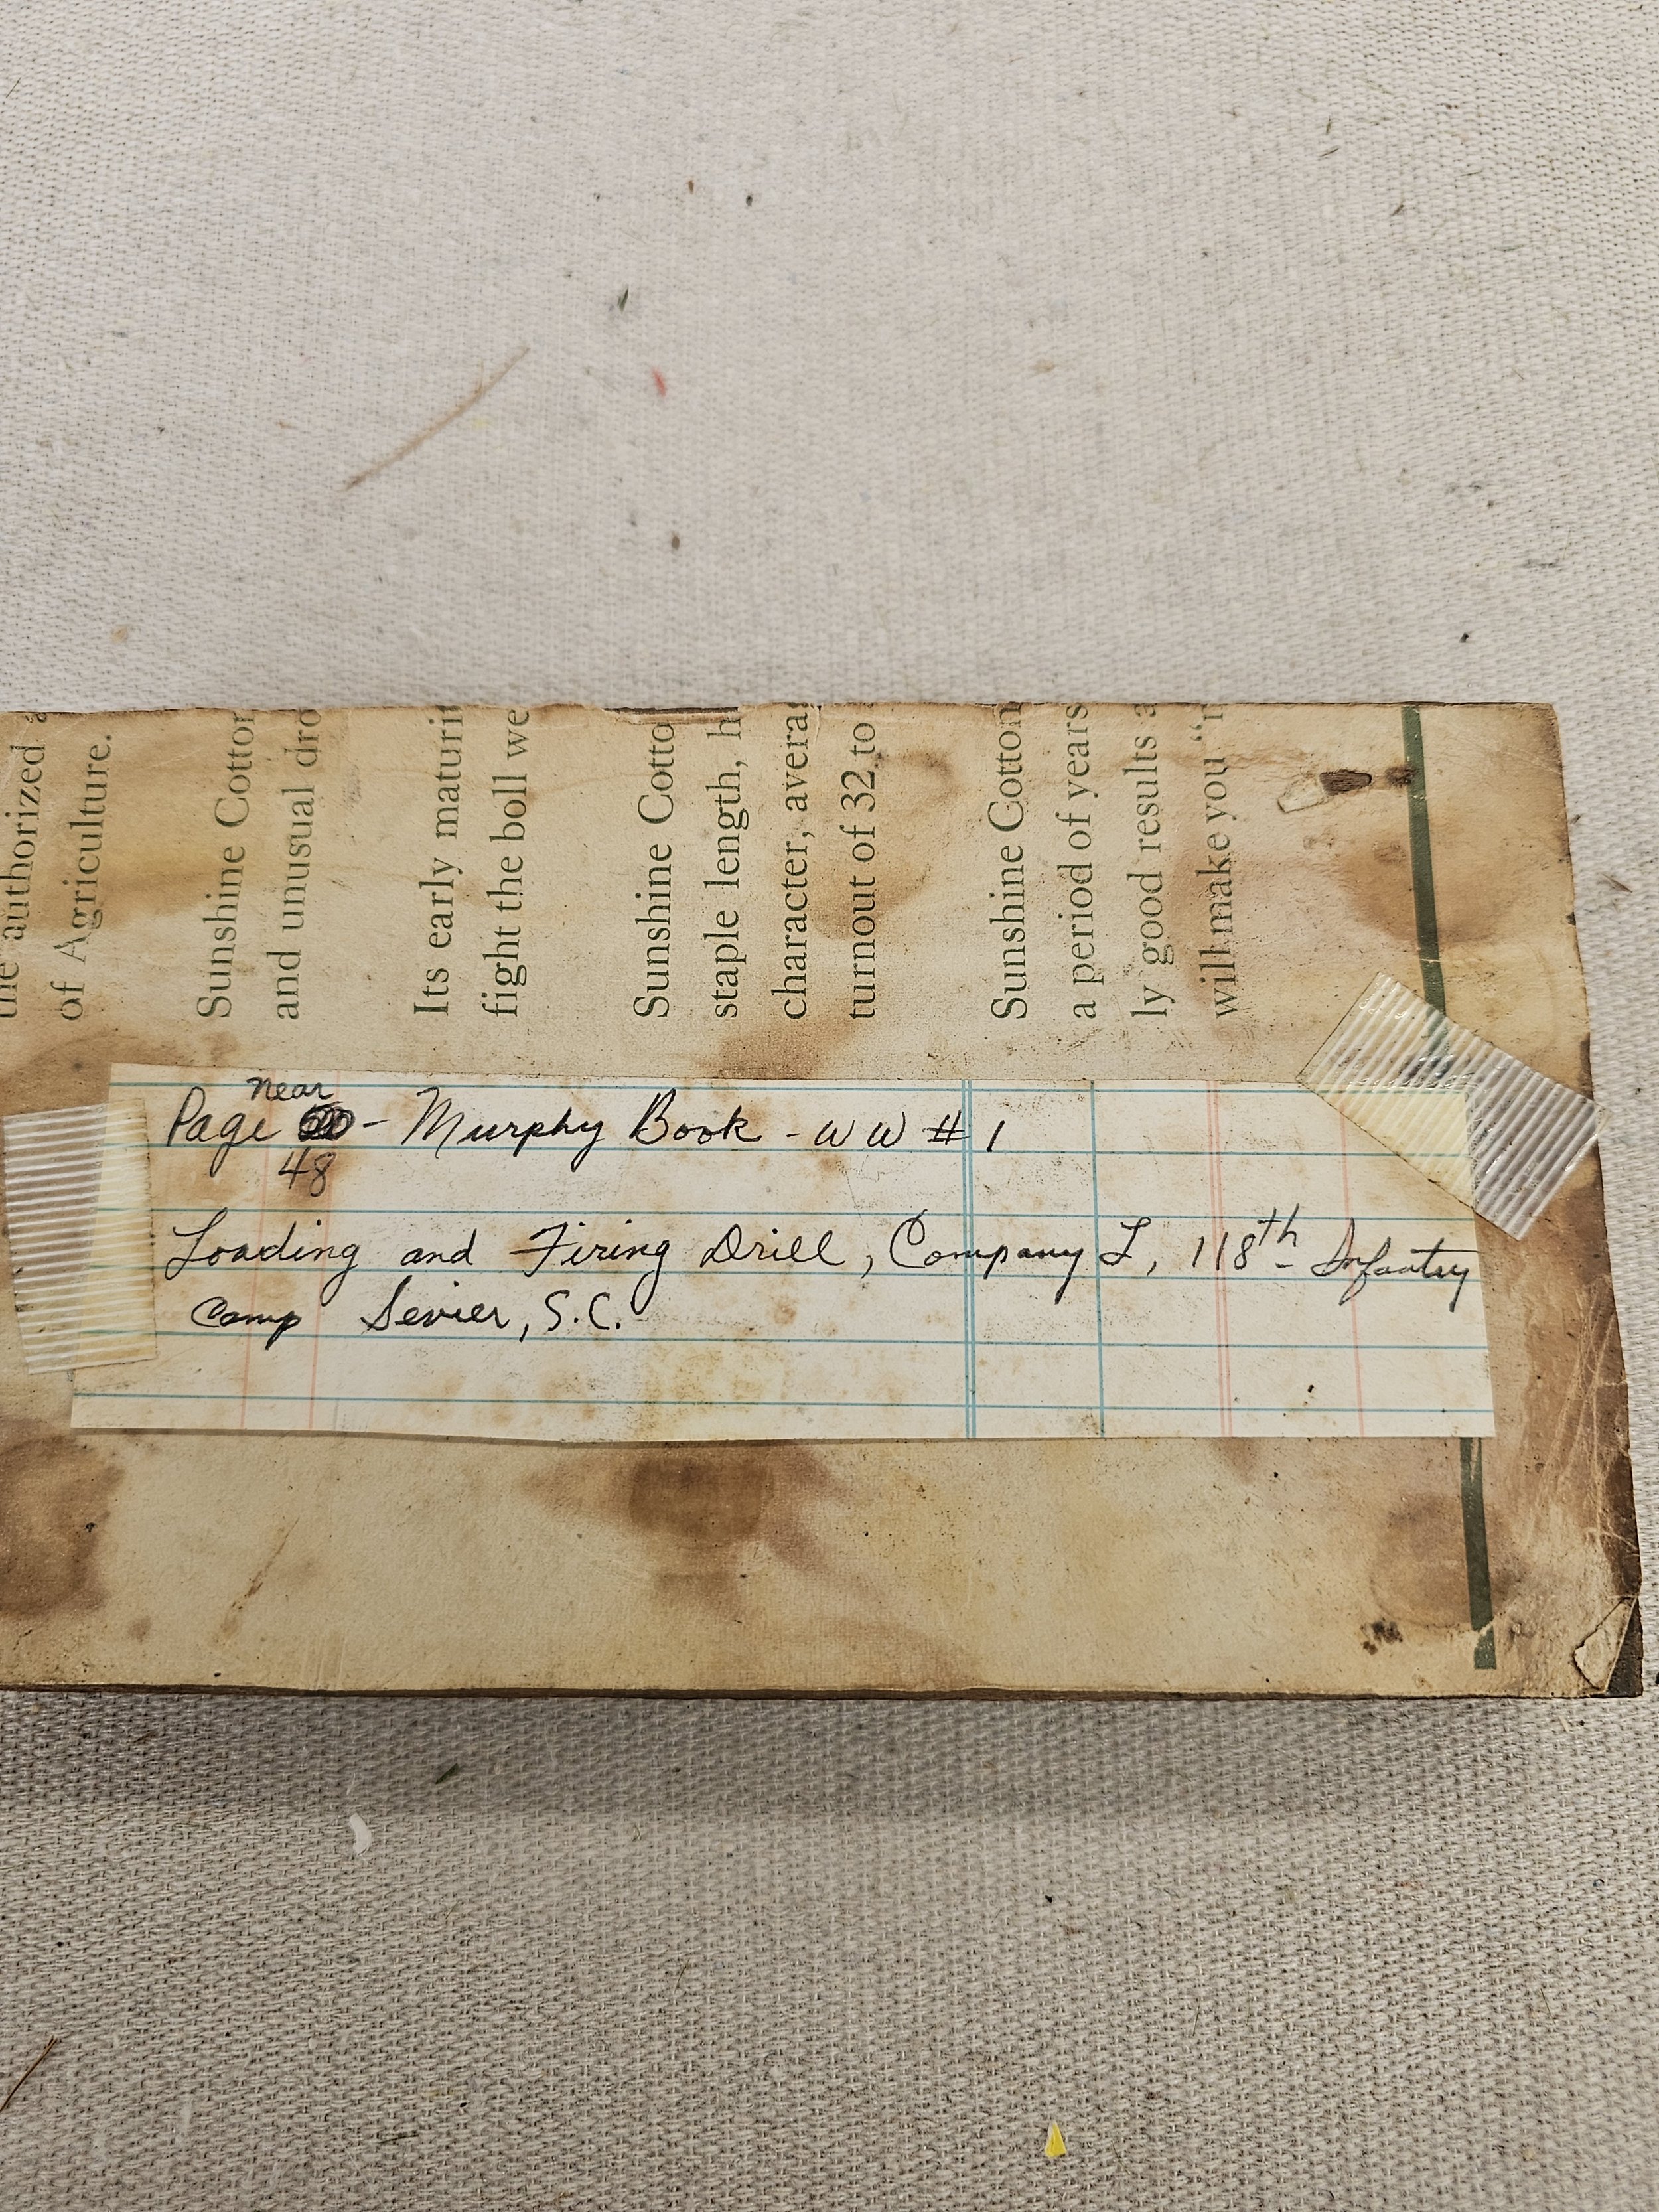 the authorized
of Agriculture.
Sunshine Cotton
and unusual dro
Its early maturit
fight the boll we
Sunshine Cotto
staple length, h
character, avera
turnout of 32 to
Sunshine Cotton
a period of years
ly good results a
will make you "r
near
Page - Murphy Book - WW # 1
48
Loading and Firing Drill, Company I, 118th Infantry
Camp Sevier, S.C.